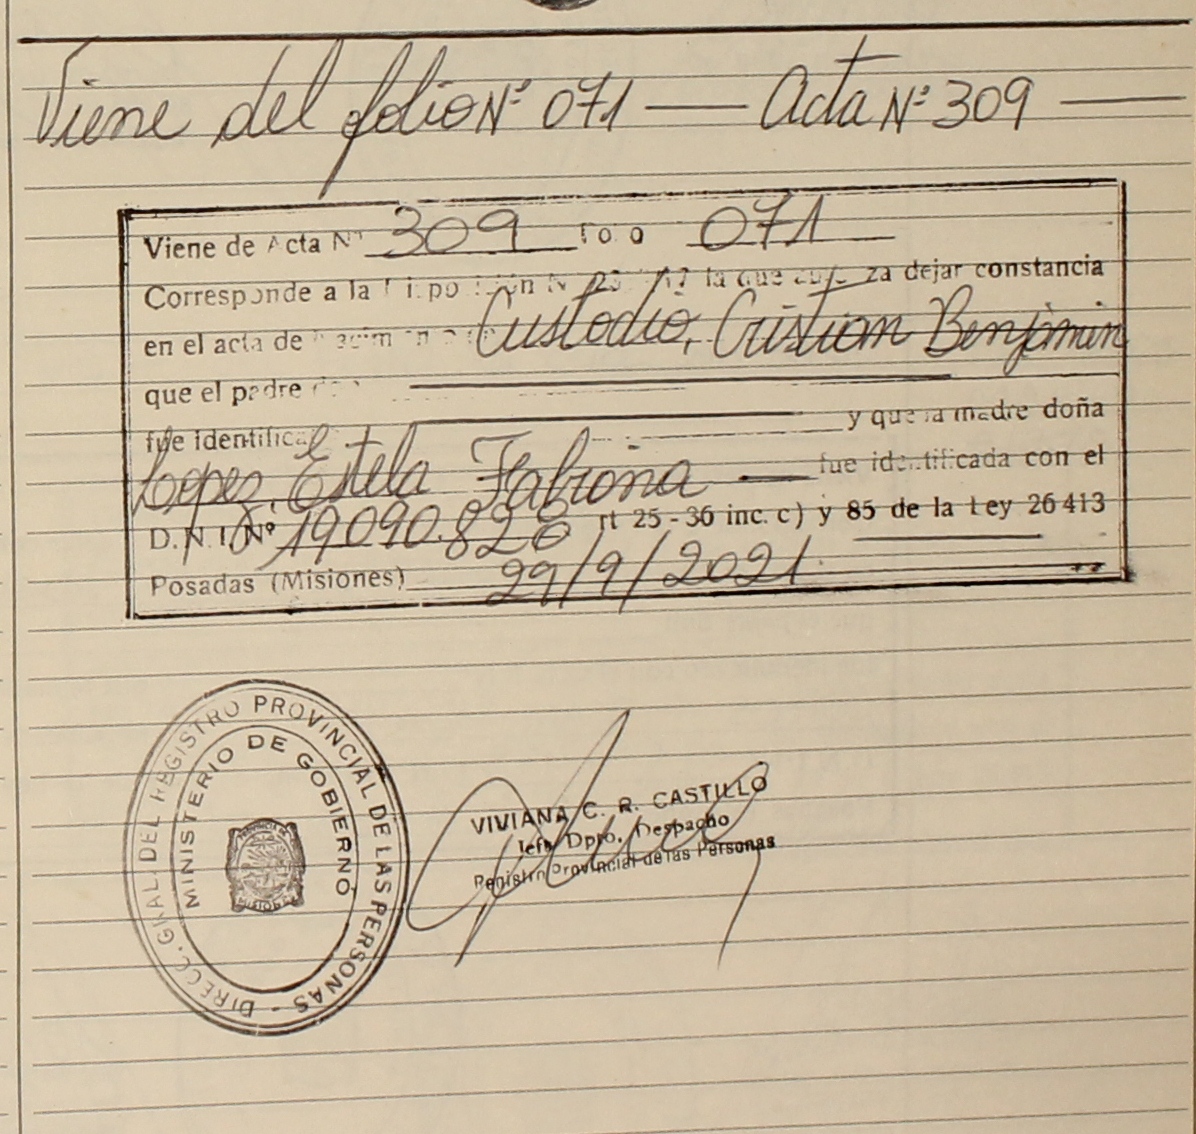 Viene del folio Nº 071 — Acta Nº 309 —
Viene de Acta Nº 309 071
Corresponde a la la que za dejar constancia
en el acta de Custodio, Cristian Benjamin
que el padre
fue identifica y que la madre doña
Lopez, Estela Fabiana — fue identificada con el
D.N.I. Nº 19090.828 rt 25 - 36 inc. c) y 85 de la Ley 26 413
Posadas (Misiones) 29/9/2021
DIRECC. GRAL. DEL REGISTRO PROVINCIAL DE LAS PERSONAS -
MINISTERIO DE GOBIERNO
PROVINCIA DE
MISIONES
VIVIANA C. R. CASTILLO
Jefe Dpto. Despacho
Registro Provincial de las Personas